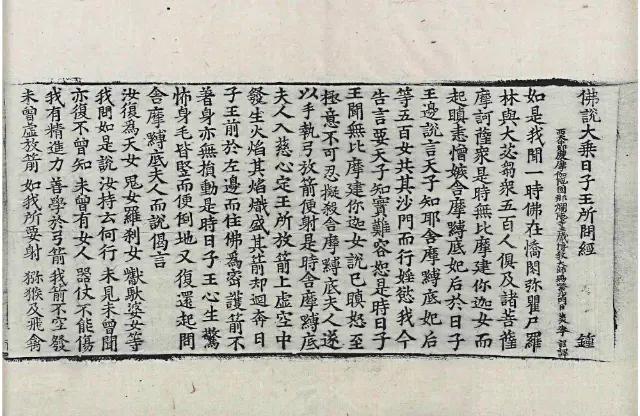 佛說大乘日子王所問經 鍾
如是我聞一時佛在憍閃弥瞿尸羅
林與大苾芻衆五百人俱及諸菩薩
摩訶薩衆是時無比摩建你迦女而
起瞋恚憎嫉舍摩嚩底妃后於日子
王邊說言天子知耶舍摩嚩底妃后
等五百女共其沙門而行婬慾我今
告言要天子知實難容恕是時日子
王聞無比摩建你迦女說已瞋怒至
極意不可忍擬殺舍摩嚩底夫人遂
以手執弓放箭便射是時舍摩嚩底
夫人入慈心定王所放箭上虛空中
發生火焰其焰熾盛其箭却迴奔日
子王前於左邊而住佛爲密護箭不
著身亦無損動是時日子王心生驚
怖身毛皆竪而便倒地又復還起問
舍摩嚩底夫人而說偈言
汝復爲天女 羅刹女 等
我問如是說 汝持云何行 未見未曾聞
亦復不曾知 未曾有女人 器仗不能傷
我有精進力 善學於弓箭 我箭不空發
未曾虛放箭 如我所要射 猕猴及飛禽